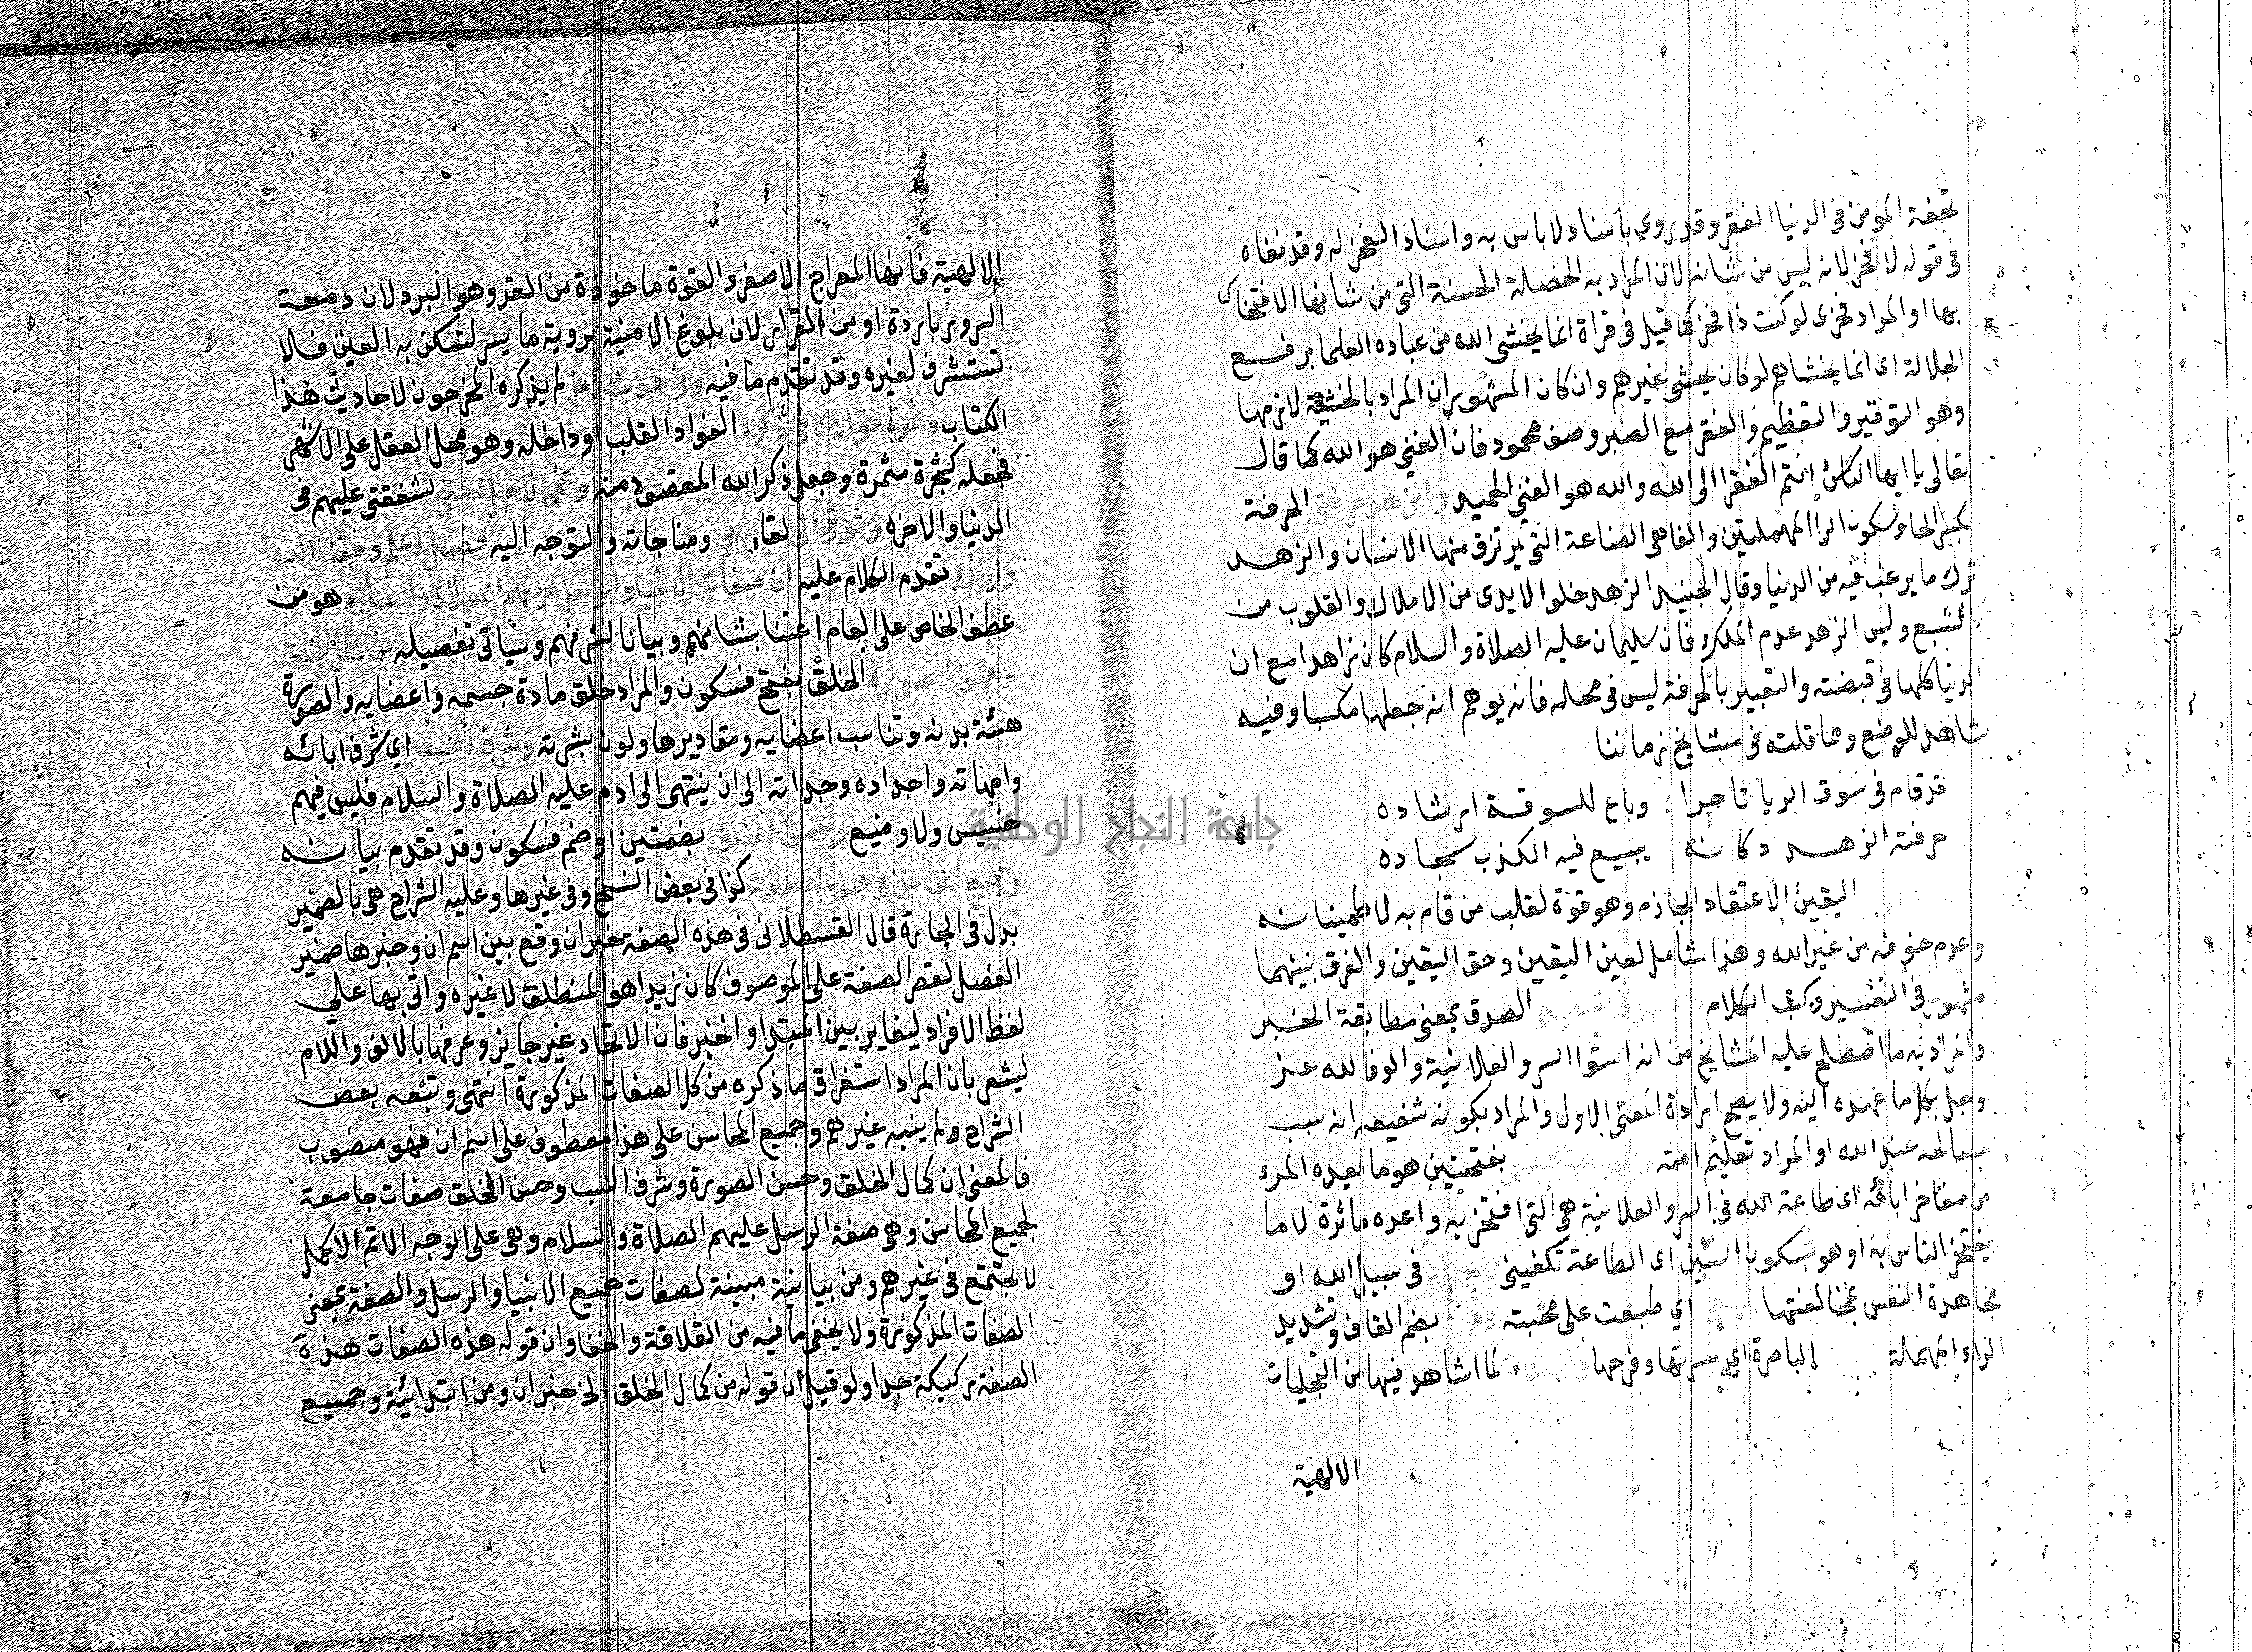 تحفة المومن في الدنيا الفقر وقد يروي باسناد لا باس به واسناد الفخر له وقد نفاه
في قوله لا فخر لانه ليس من شانه لان المراد به الخصلة الحسنة التي من شانها الافتخار
بها او المراد فخري لو كنت ذا فخر كما قيل في قراة انما يخشى الله من عباده العلما برفع
الجلالة اي انما يخشاهم لو كان يخشى غيرهم وان كان المشهور ان المراد بالخشية لازمها
وهو التوقير والتعظيم والفقر مع الصبر وصف محمود فان الغني هو الله كما قال
تعالى يا ايها الناس انتم الفقرا الى الله والله هو الغني الحميد والزهد حرفتي الحرفة
بكسر الحا وسكون الرا المهملتين والفا هي الصناعة التي يرتزق منها الانسان والزهد
ترك ما يرغب فيه من الدنيا وقال الجنيد الزهد خلو الايدي من الاملاك والقلوب من
التتبع وليس الزهد عدم الملك وفان سليمان عليه الصلاة والسلام كان زاهدا مع ان
الدنيا كلها في قبضته والتعبير بالحرفة ليس في محله فانه يوهم انه جعلها مكسبا وفيه
شاهد للوضع ومما قلته في مشايخ زماننا
قد قام في سوق الريا تاجرا وباع للسوقة ارشاده
حرفته الزهد دكانه يبيع فيه الكذب سجاده
اليقين الاعتقاد الجازم وهو قوة لقلب من قام به لاطمينانه
وعدم خوفه من غير الله وهذا شامل لعين اليقين وحق اليقين والفرق بينهما
مشهور في التفسير وكتب الكلام الصدق شفيعي الصدق بمعنى مطابقة الخبر
والمراد به ما اصطلح عليه المشايخ من انه استوا السر والعلانية والوفا لله عز
وجل بكل ما عهده اليه ولا يصح ارادة المعنى الاول والمراد بكونه شفيعه انه سبب
عند الله او المراد تعليم امته بفتحتين هو ما يعده المرء
من مفاخر ابائه اي طاعة الله في السر والعلانية هي التي افتخر به واعده ماثرة لا ما
يفتخر الناس به او هو بسكون السين اي الطاعة تكفيني في سبيل الله او
مجاهدة النفس بمخالفتها اي طبعت على محبته بضم القاف وتشديد
الراء المهملة الباصرة اي مسرتها وفرحها لما اشاهد فيها من التجليات
الالهية
الالهية فانها المعراج الاصغر والقوة ماخوذة من القر وهو البرد لان دمعة
السرور باردة او من القرار لان بلوغ الامنية بروية ما يسر لتسكن به العين فلا
تستشرف لغيره وقد تقدم ما فيه وفي حديث اخر لم يذكره المخرجون لاحاديث هذا
الكتاب وثمرة فوادي في ذكره الفواد القلب او داخله وهو محل العقل على الاشهر
فجعله كشجرة مثمرة وجعل ذكر الله المقصود منه وغمي لاجل امتي لشفقتي عليهم في
الدنيا والاخرة وشوقي الى لقا ربي ومناجاته والتوجه اليه فصل اعلم وفقنا الله
واياك تقدم الكلام عليه ان صفات الانبيا والرسل عليهم الصلاة والسلام هو من
عطف الخاص على العام اعتنا بشانهم وبيانا لشرفهم وسياتي تفصيله من كمال الخلق
وحسن الصورة الخلق بفتح فسكون والمراد خلق مادة جسمه واعضايه والصورة
هيئة بدنه وتناسب اعضايه ومقاديرها ولون بشرته وشرف النسب اي شرف ابائه
وامهاته واجداده وجداته الى ان ينتهى الى ادم عليه الصلاة والسلام فليس فيهم
خسيس ولا وضيع وحسن الخلق بضمتين او ضم فسكون وقد تقدم بيانه
وجميع المحاسن في هذه الصفة كذا في بعض النسخ وفي غيرها وعليه الشراح هي بالضمير
بدل في الجارة قال القسطلاني في هذه الصفة خبر ان وقع بين اسم ان وخبرها ضمير
الفصل لقصر الصفة على الموصوف كان زيدا هو المنطلق لا غيره واتى بها على
لفظ الافراد ليغاير بين المبتدا والخبر فان الاتحاد غير جايز وعرفها بالالف واللام
ليشعر بان المراد استغراق ما ذكره من كل الصفات المذكورة انتهى وتبعه بعض
الشراح ولم ينبه غيرهم وجميع المحاسن على هذا معطوف على اسم ان فهو منصوب
فالمعنى ان كمال الخلق وحسن الصورة وشرف النسب وحسن الخلق صفات جامعة
لجميع المحاسن وهي صفة الرسل عليهم الصلاة والسلام وهي على الوجه الاتم الاكمل
لا تجتمع في غيرهم ومن بيانية مبينة لصفات جميع الانبيا والرسل والصفة بمعنى
الصفات المذكورة ولا يخفى ما فيه من القلاقة والخفا وان قوله هذه الصفات هذه
الصفة ركيكة جدا ولو قيل ان قوله من كمال الخلق الخ خبر ان ومن ابتدائية وجميع
جامعة النجاح الوطنية